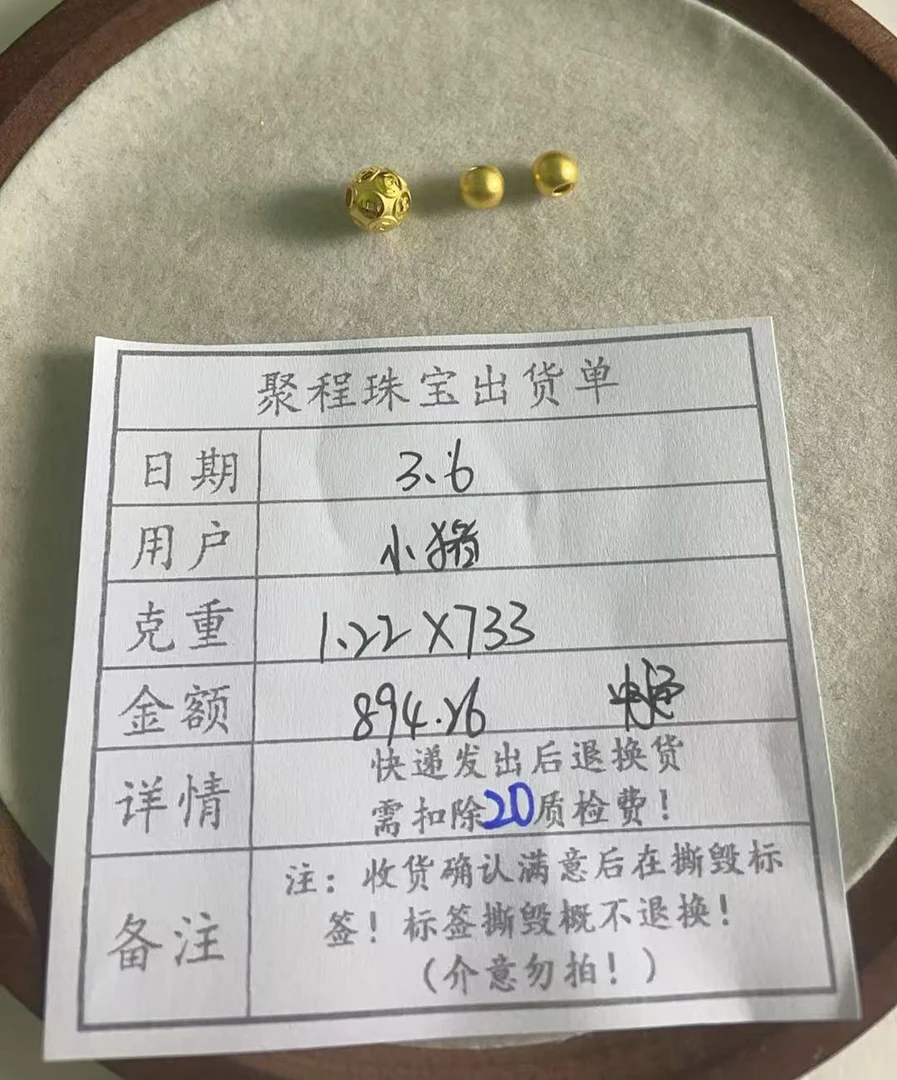 聚程珠宝出货单
日期 3.6
用户 小猪
克重 1.22×733
金额 894.26
详情 快递发出后退换货
需扣除20质检费！
备注 注：收货确认满意后在撕毁标
签！标签撕毁概不退换！
（介意勿拍！）